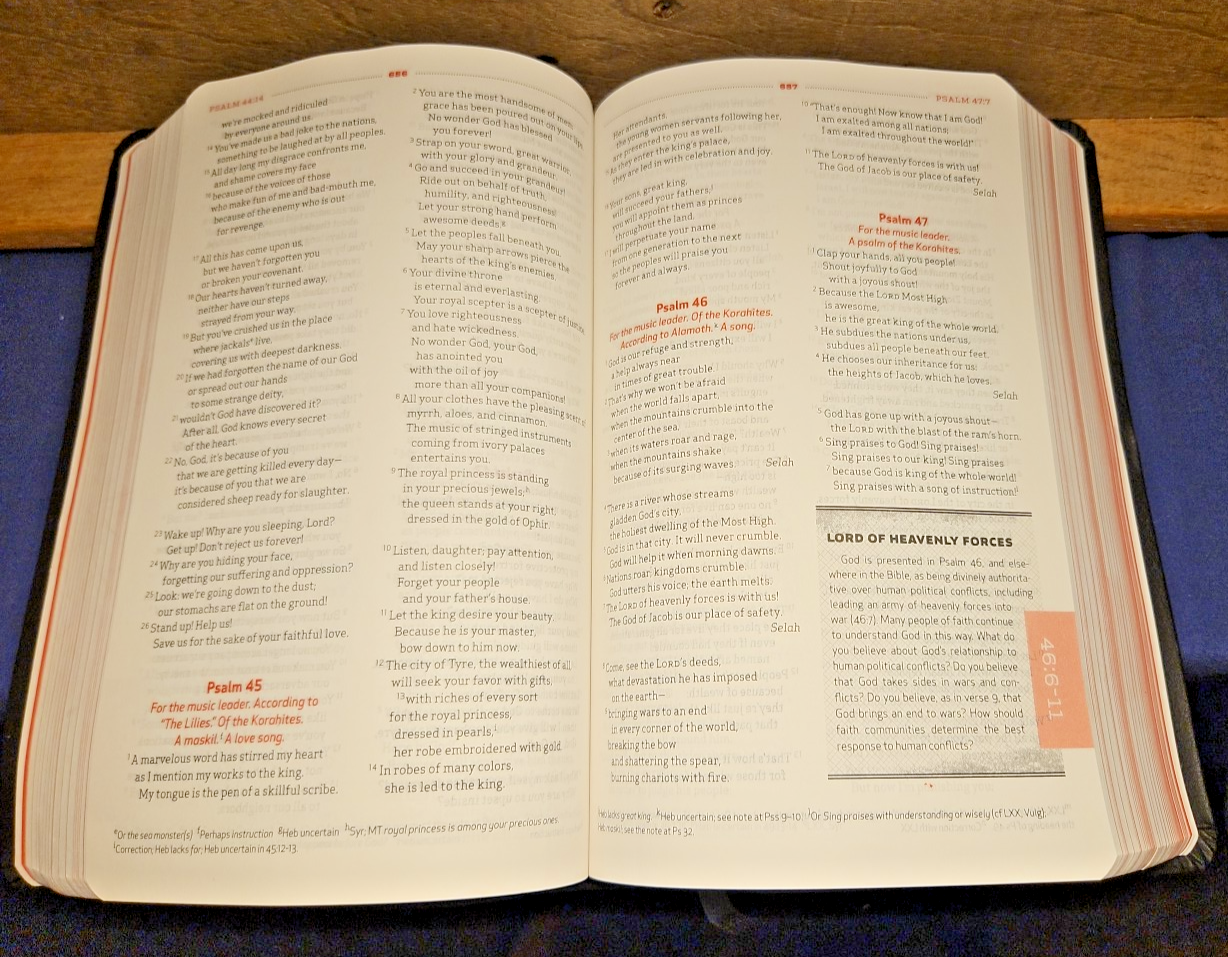 PSALM 44:14
686
we're mocked and ridiculed
by everyone around us.
14 You've made us a bad joke to the nations,
something to be laughed at by all peoples.
15 All day long my disgrace confronts me,
and shame covers my face
16 because of the voices of those
who make fun of me and bad-mouth me,
because of the enemy who is out
for revenge.
17 All this has come upon us,
but we haven't forgotten you
or broken your covenant.
18 Our hearts haven't turned away,
neither have our steps
strayed from your way.
19 But you've crushed us in the place
where jackals e live,
covering us with deepest darkness.
20 If we had forgotten the name of our God
or spread out our hands
to some strange deity,
21 wouldn't God have discovered it?
After all, God knows every secret
of the heart.
22 No, God, it's because of you
that we are getting killed every day—
it's because of you that we are
considered sheep ready for slaughter.
23 Wake up! Why are you sleeping, Lord?
Get up! Don't reject us forever!
24 Why are you hiding your face,
forgetting our suffering and oppression?
25 Look: we're going down to the dust;
our stomachs are flat on the ground!
26 Stand up! Help us!
Save us for the sake of your faithful love.
Psalm 45
For the music leader. According to
"The Lilies." Of the Korahites.
A maskil. f A love song.
1 A marvelous word has stirred my heart
as I mention my works to the king.
My tongue is the pen of a skillful scribe.
2 You are the most handsome of men;
grace has been poured out on your lips
No wonder God has blessed
you forever!
3 Strap on your sword, great warrior,
with your glory and grandeur.
4 Go and succeed in your grandeur!
Ride out on behalf of truth,
humility, and righteousness!
Let your strong hand perform
awesome deeds. g
5 Let the peoples fall beneath you.
May your sharp arrows pierce the
hearts of the king's enemies.
6 Your divine throne
is eternal and everlasting.
Your royal scepter is a scepter of justice
7 You love righteousness
and hate wickedness.
No wonder God, your God,
has anointed you
with the oil of joy
more than all your companions!
8 All your clothes have the pleasing scent of
myrrh, aloes, and cinnamon.
The music of stringed instruments
coming from ivory palaces
entertains you.
9 The royal princess is standing
in your precious jewels; h
the queen stands at your right,
dressed in the gold of Ophir.
10 Listen, daughter; pay attention,
and listen closely!
Forget your people
and your father's house.
11 Let the king desire your beauty.
Because he is your master,
bow down to him now.
12 The city of Tyre, the wealthiest of all,
will seek your favor with gifts,
13 with riches of every sort
for the royal princess,
dressed in pearls, i
her robe embroidered with gold
14 In robes of many colors,
she is led to the king.
e Or the sea monster(s) f Perhaps instruction g Heb uncertain h Syr; MT royal princess is among your precious ones.
i Correction; Heb lacks for; Heb uncertain in 45:12-13.
687
PSALM 47:7
Her attendants,
the young women servants following her,
are presented to you as well.
As they enter the king's palace,
they are led in with celebration and joy.
Your sons, great king,
will succeed your fathers; j
you will appoint them as princes
throughout the land.
I will perpetuate your name
from one generation to the next
so the peoples will praise you
forever and always.
Psalm 46
For the music leader. Of the Korahites.
According to Alamoth. k A song.
1 God is our refuge and strength,
a help always near
in times of great trouble.
2 That's why we won't be afraid
when the world falls apart,
when the mountains crumble into the
center of the sea,
3 when its waters roar and rage,
when the mountains shake
because of its surging waves. Selah
4 There is a river whose streams
gladden God's city,
the holiest dwelling of the Most High.
5 God is in that city. It will never crumble.
God will help it when morning dawns.
6 Nations roar; kingdoms crumble.
God utters his voice; the earth melts.
7 The LORD of heavenly forces is with us!
The God of Jacob is our place of safety.
Selah
8 Come, see the LORD's deeds,
what devastation he has imposed
on the earth—
9 bringing wars to an end
in every corner of the world,
breaking the bow
and shattering the spear,
burning chariots with fire.
10 "That's enough! Now know that I am God!
I am exalted among all nations;
I am exalted throughout the world!"
11 The LORD of heavenly forces is with us!
The God of Jacob is our place of safety.
Selah
Psalm 47
For the music leader.
A psalm of the Korahites.
1 Clap your hands, all you people!
Shout joyfully to God
with a joyous shout!
2 Because the LORD Most High
is awesome,
he is the great king of the whole world.
3 He subdues the nations under us,
subdues all people beneath our feet.
4 He chooses our inheritance for us:
the heights of Jacob, which he loves.
Selah
5 God has gone up with a joyous shout—
the LORD with the blast of the ram's horn.
6 Sing praises to God! Sing praises!
Sing praises to our king! Sing praises
7 because God is king of the whole world!
Sing praises with a song of instruction! l
LORD OF HEAVENLY FORCES
God is presented in Psalm 46, and else-
where in the Bible, as being divinely authorita-
tive over human political conflicts, including
leading an army of heavenly forces into
war (46:7). Many people of faith continue
to understand God in this way. What do
you believe about God's relationship to
human political conflicts? Do you believe
that God takes sides in wars and con-
flicts? Do you believe, as in verse 9, that
God brings an end to wars? How should
faith communities determine the best
response to human conflicts?
46:6-11
Heb lacks great king. k Heb uncertain; see note at Pss 9–10. l Or Sing praises with understanding or wisely (cf LXX, Vulg);
Heb maskil; see the note at Ps 32.